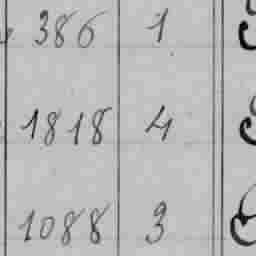 386 1
1818 4
1088 3